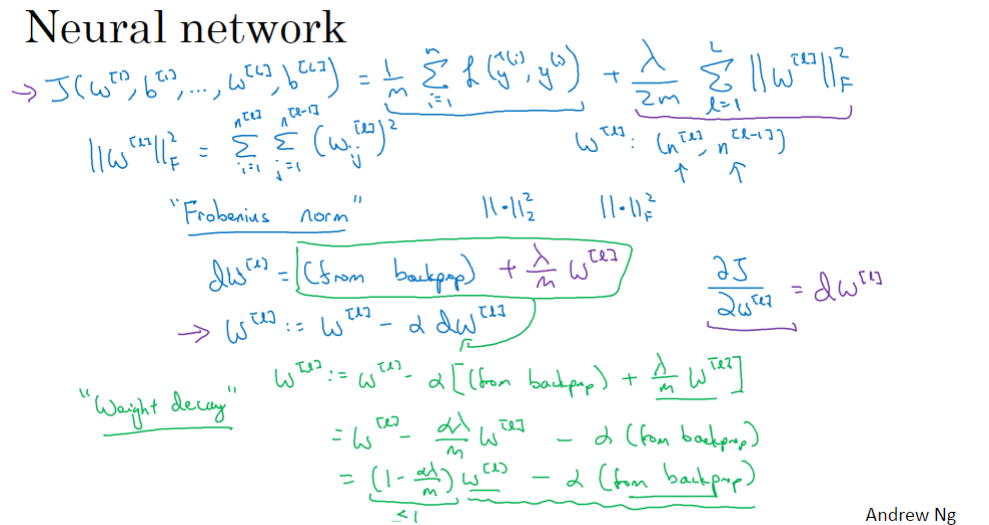 Neural network
→ J(w^[1], b^[1], ..., w^[L], b^[L]) = 1/m Σ_{i=1}^{n} L(ŷ^(i), y^(i)) + λ/2m Σ_{l=1}^{L} ||w^[l]||_F^2
||w^[l]||_F^2 = Σ_{i=1}^{n^[l]} Σ_{j=1}^{n^[l-1]} (w_ij^[l])^2 w^[l]: (n^[l], n^[l-1])
↑ ↑
"Frobenius norm" ||·||_2^2 ||·||_F^2
dw^[l] = (from backprop) + λ/m w^[l]
∂J/∂w^[l] = dw^[l]
→ w^[l] := w^[l] - α dw^[l]
"Weight decay" w^[l] := w^[l] - α[(from backprop) + λ/m w^[l]]
= w^[l] - αλ/m w^[l] - α (from backprop)
= (1 - αλ/m) w^[l] - α (from backprop)
<1
Andrew Ng